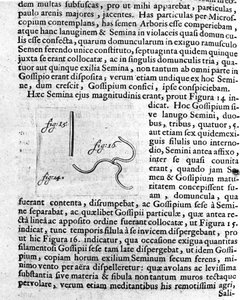 dam multas subfuscas, pro ut mihi apparebat, diversas
paulo arenis majores, jacentes. Has particulas per Micros-
copium contemplans, has semen Arboris esse comperiebam,
atque hanc lanuginem & Semina in violaceis quasi domuncu-
lis esse confecta, quarum domuncularum in exiguo ramusculo
Semen ferendo unice constituto, septuaginta quædam unaquæque
juxta se erant collocatæ, ac in singulis domunculis tria, qua-
tuor aut quinque exilia Semina, non tantum ab omni parte in
Gossipio erant disposita, verum etiam undique ex hoc Semi-
ne, dum crescit, Gossipium confici, ipse conspiciebam.
Hæc Semina ejus magnitudinis erant, prout Figura 14 in-
dicat. Hoc Gossipium si-
ve lanugo Semini, duo-
bus, tribus, quatuor,
etiam sex quidem exi-
guis filulis uno interno-
dio, Semini antea affixo,
inter se quasi counita
erant, quando jam Se-
men & Gossipium maturi-
tatem concepissent su-
am, domuncula, qua
fig: 15.
fig: 16.
fig: 14.
fuerant contenta, disrumpebat, ac Gossipium sese à Semi-
ne separabat, ac quælibet Gossipii particula, quæ antea re-
cta lineâ ac apposito ordine fuerant collocatæ, ut Figura 15.
indicat, tunc temporis filula à se invicem dispergebant, pro
ut hic Figura 16. indicatur, qua occasione exigua quantitas
filamentosi Gossipii sese tam late dispergebat, ut idem Gossi-
pium, copiam horum exilium Seminum secum ferens, mi-
nimo vento per aëra dispelleretur: quæ avolans ac levissima
substantia sive materia & nubila non tantum muros rectaque
pervolare, verum etiam meditabundis his remotissimi agri,
Sali-